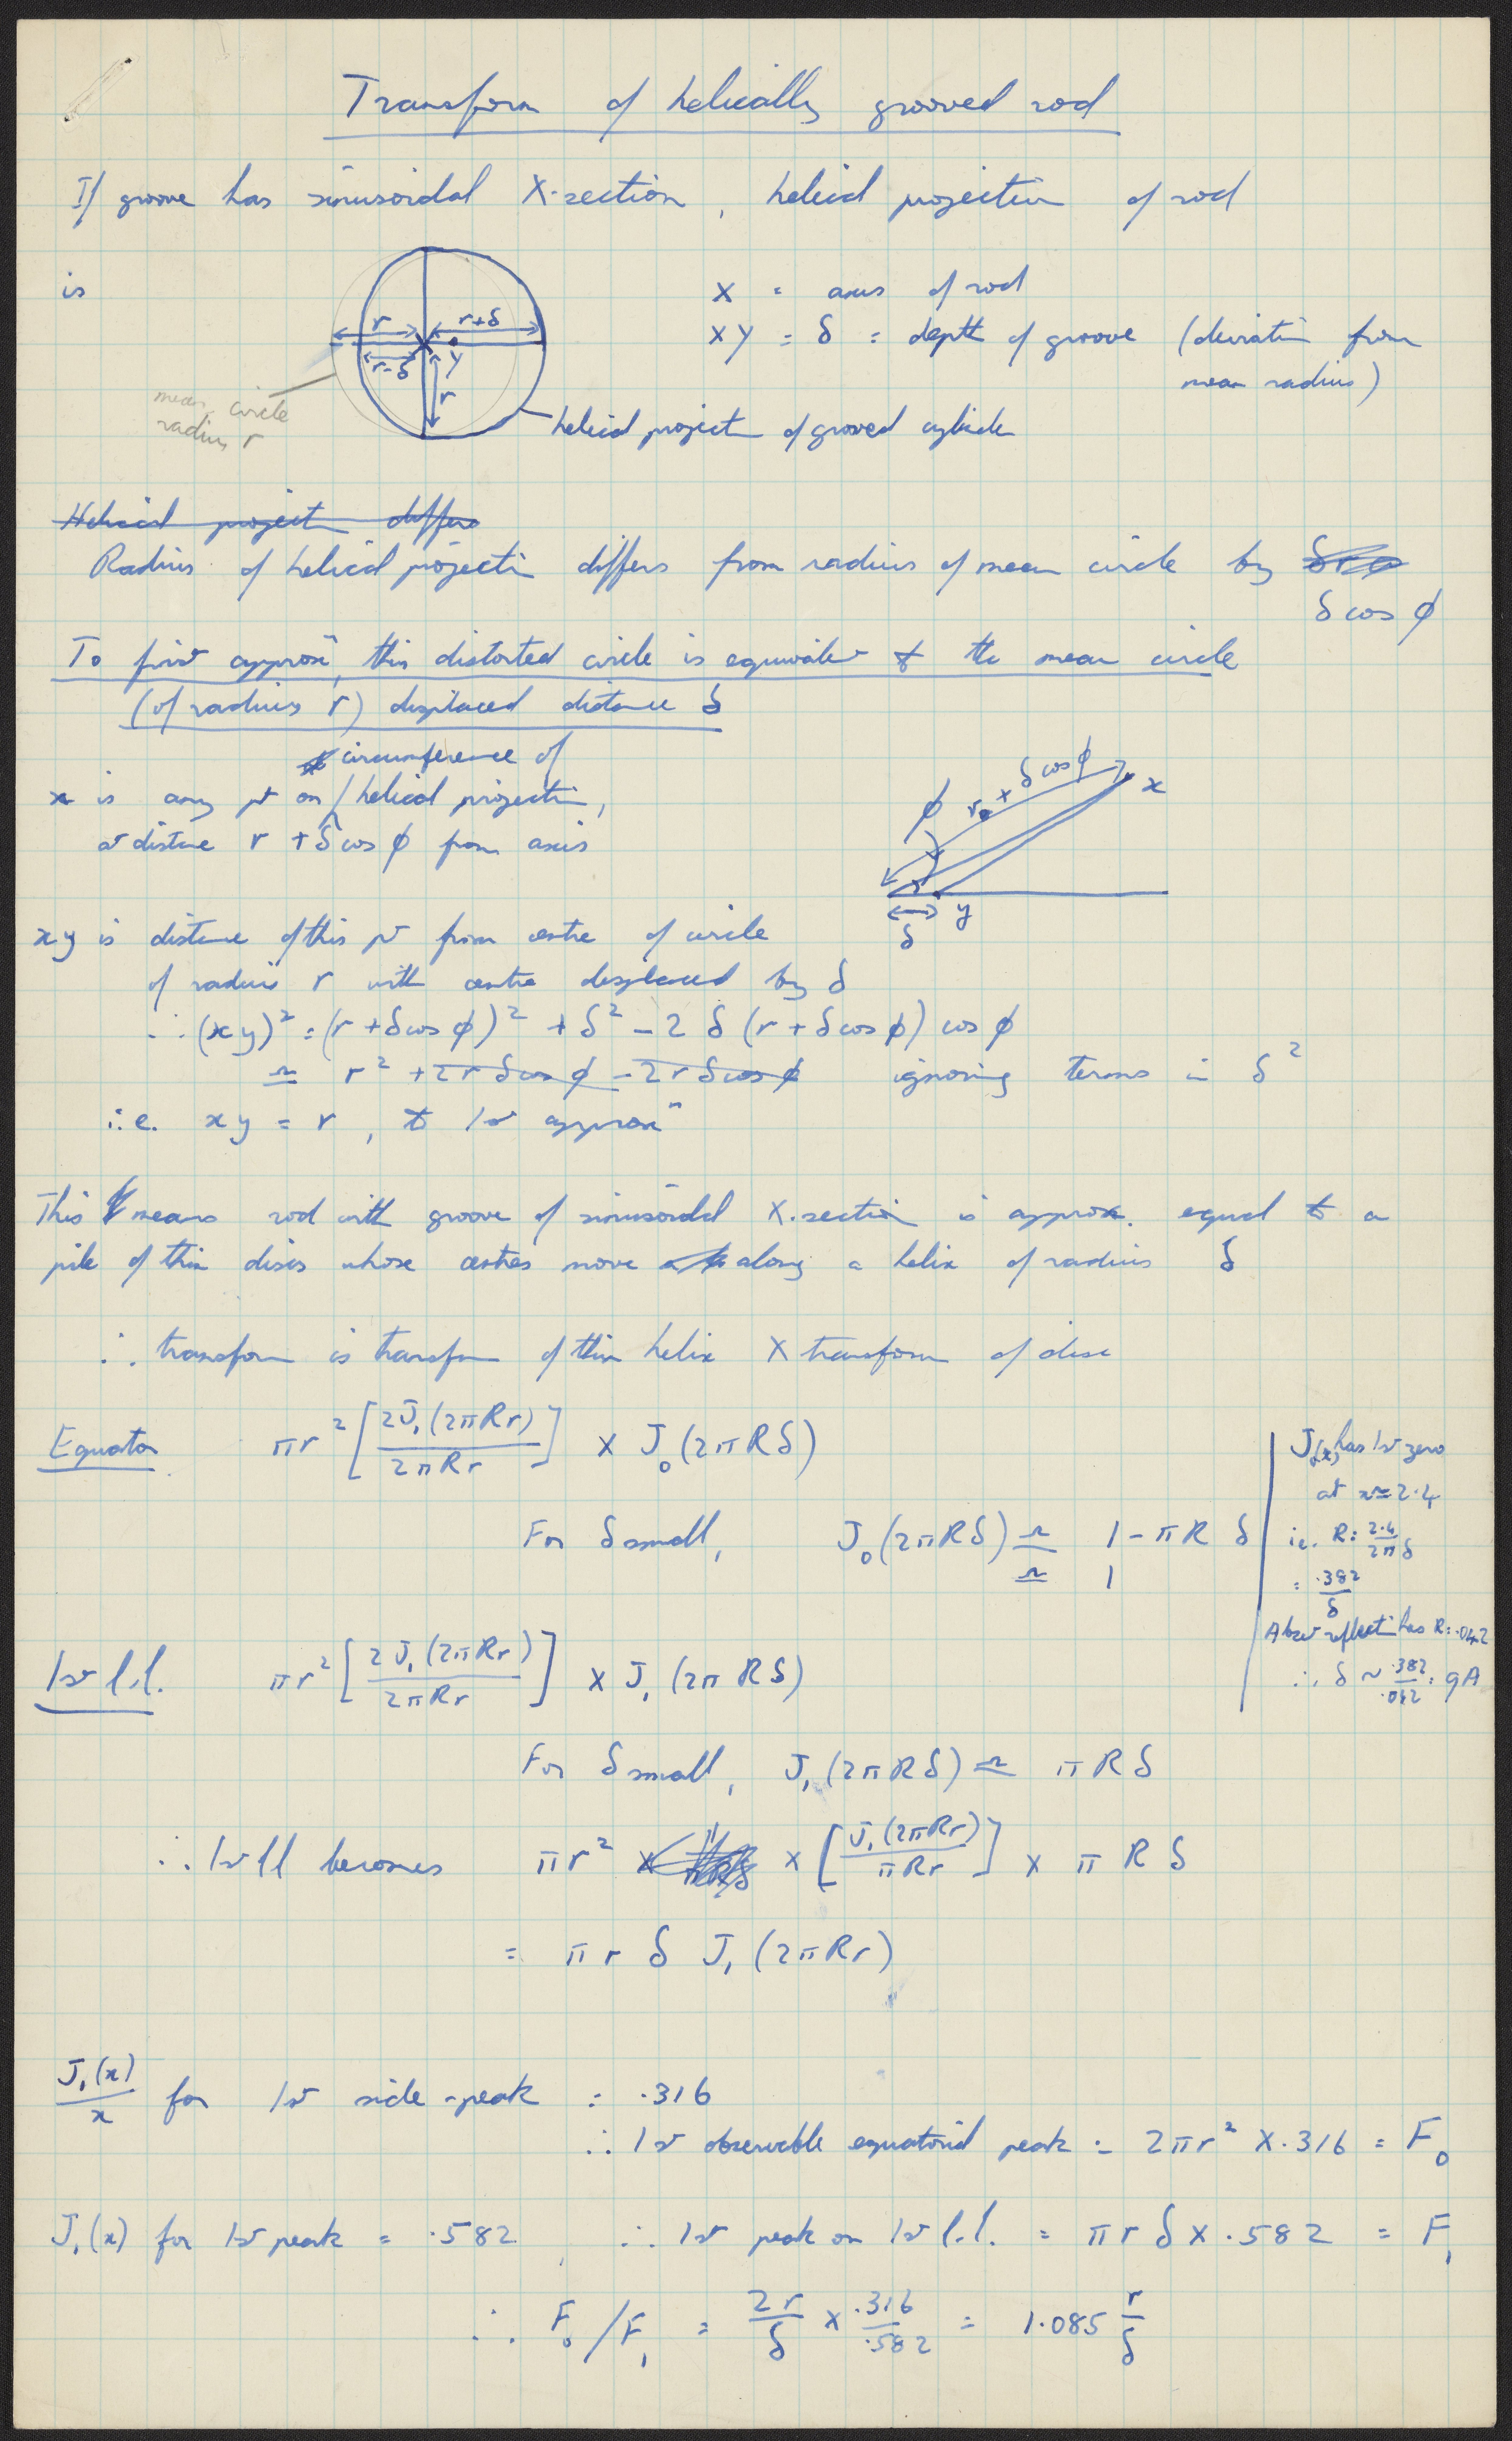 Transform of helically grooved rod
If groove has sinusoidal X-section, helical projection of rod
is
X = axis of rod
XY = δ = depth of groove (deviation from
mean radius)
r
r+δ
r-δ
Y
r
mean circle
radius r
helical project of grooved cylinder
Helical project differs
Radius of helical projecti differs from radius of mean circle by
δ cos φ
To first approxn, this distorted circle is equivalent to the mean circle
(of radius r) displaced distance δ
circumference of
x is any pt on / helical projecti,
at distance r + δ cos φ from axis
φ r + δ cos φ x
δ y
xy is distance of this pt from centre of circle
of radius r with centre displaced by δ
∴ (xy)² = (r + δ cos φ)² + δ² - 2 δ (r + δ cos φ) cos φ
≃ r² + 2r δ cos φ - 2r δ cos φ ignoring terms in δ²
i.e. xy = r, to 1st approxn
This means rod with groove of sinusoidal X.section is approx. equal to a
pile of thin discs whose centres move along a helix of radius δ
∴ transform is transform of thin helix X transform of disc
Equator πr² [2J₁(2πRr) / 2πRr] × J₀(2πRδ)
For δ small, J₀(2πRδ) ≃ 1 - πR δ
≃ 1
J₀(x) has 1st zero
at x≃2.4
i.e. R = 2.4 / 2πδ
= .382 / δ
Absent reflecti has R = .042
∴ δ ~ .382 / .042 = 9A
1st l.l. πr² [2J₁(2πRr) / 2πRr] × J₁(2πRδ)
For δ small, J₁(2πRδ) ≃ πRδ
∴ 1st ll becomes πr² × [J₁(2πRr) / πRr] × πRδ
= π r δ J₁(2πRr)
J₁(x) / x for 1st side-peak = .316
∴ 1st observable equatorial peak = 2πr² X .316 = F₀
J₁(x) for 1st peak = .582, ∴ 1st peak on 1st l.l. = π r δ X .582 = F₁
∴ F₀/F₁ = 2r/δ × .316/.582 = 1.085 r/δ